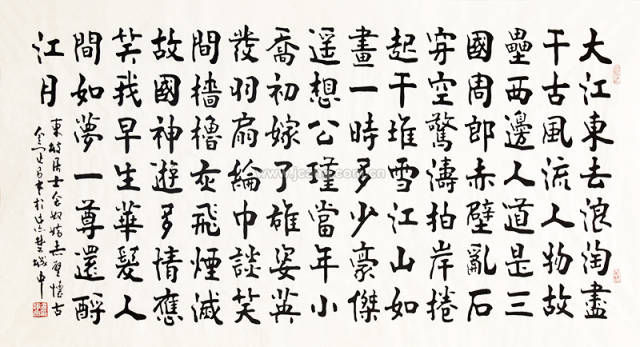 大江東去浪淘盡
千古風流人物故
壘西邊人道是三
國周郎赤壁亂石
穿空驚濤拍岸捲
起千堆雪江山如
畫一時多少豪傑
遙想公瑾當年小
喬初嫁了雄姿英
發羽扇綸巾談笑
間檣櫓灰飛煙滅
故國神遊多情應
笑我早生華髮人
間如夢一尊還酹
江月
東坡居士念奴嬌赤壁懷古